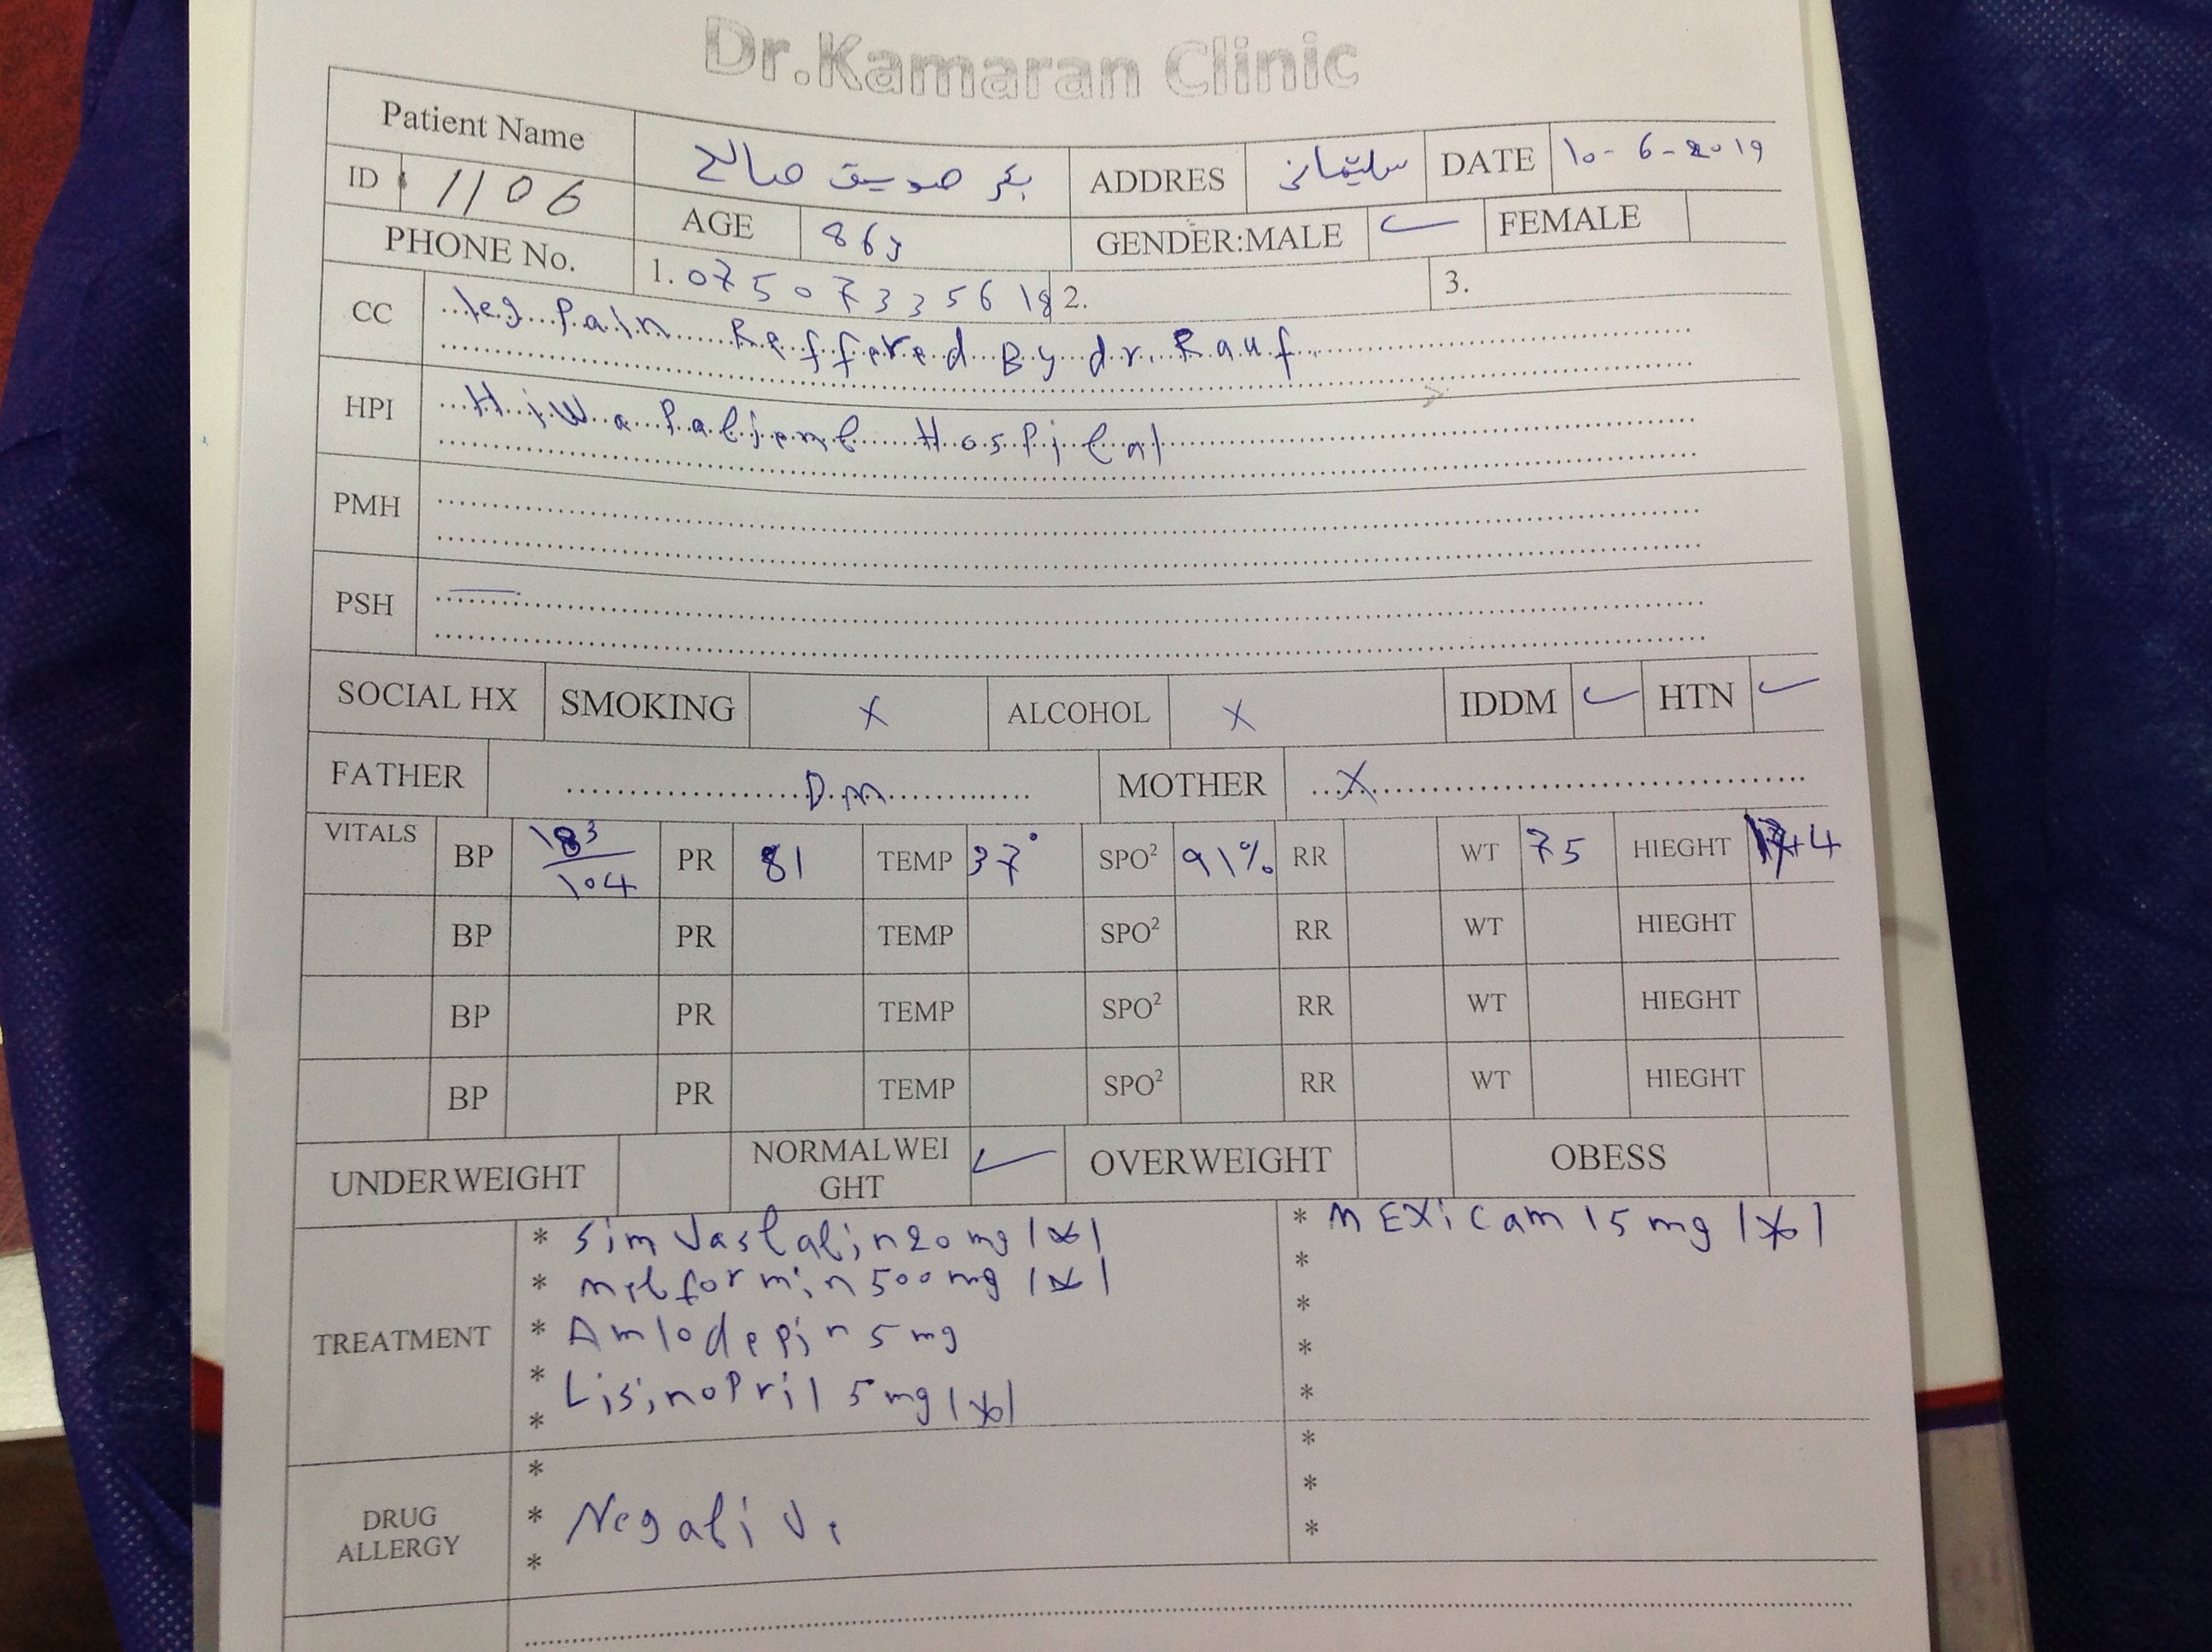 Dr.Kamaran Clinic
Patient Name صالح ADDRES سلێمانی DATE 10-6-2019
ID 1106 AGE 86y GENDER:MALE ✓ FEMALE
PHONE No. 1. 2. 3.
CC leg Pain Reffered By dr. Rauf
HPI Hiwa Patient Hospital
PMH
PSH —
SOCIAL HX SMOKING X ALCOHOL X IDDM ✓ HTN ✓
FATHER D.m MOTHER X
VITALS BP 183/104 PR 81 TEMP 37° SPO² 91% RR WT 75 HIEGHT
BP PR TEMP SPO² RR WT HIEGHT
BP PR TEMP SPO² RR WT HIEGHT
BP PR TEMP SPO² RR WT HIEGHT
UNDERWEIGHT NORMALWEI ✓ OVERWEIGHT OBESS
GHT
TREATMENT
* Simvastatin 20 mg 1x1
* metformin 500 mg 1x1
* Amlodepin 5 mg
* Lisinopril 5 mg 1x1
*
* MEXiCam 15 mg 1x1
*
*
*
*
DRUG
ALLERGY
*
* Negative
*
*
*
*